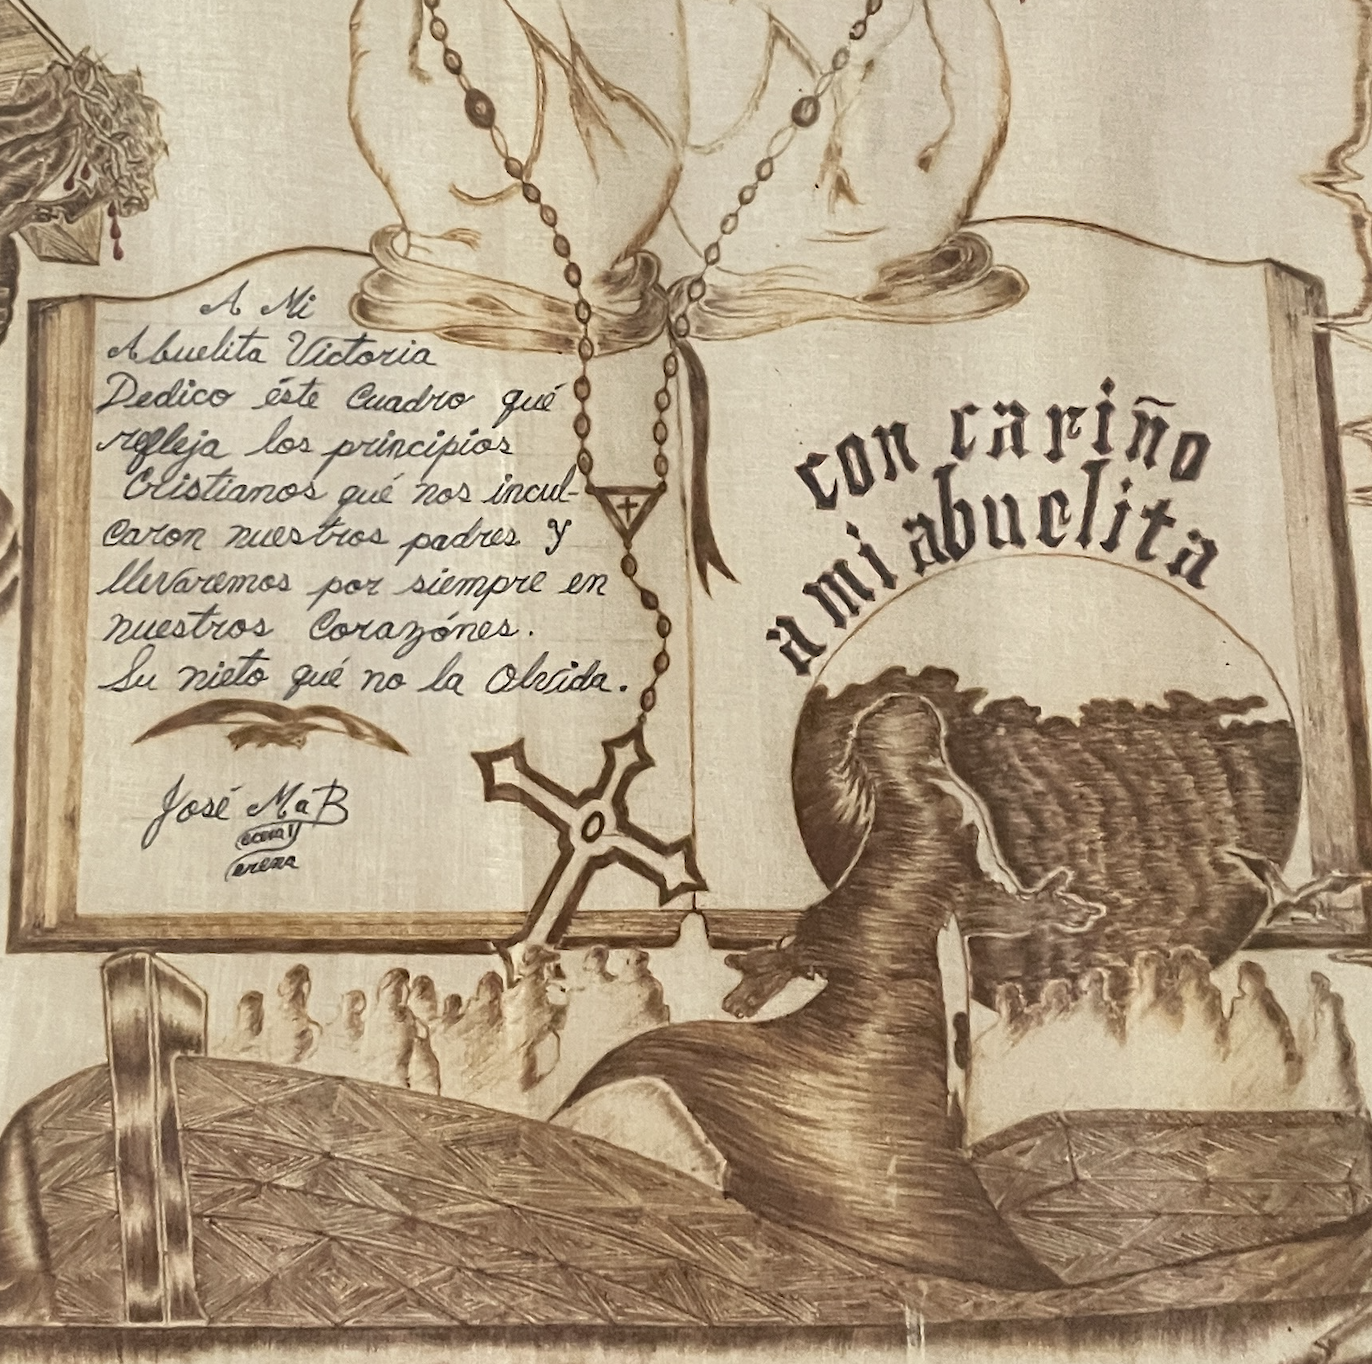 A Mi
Abuelita Victoria
Dedico éste Cuadro qué
refleja los principios
Cristianos qué nos incul-
caron nuestros padres y
llevaremos por siempre en
nuestros Corazónes.
Su nieto qué no la Olvida.
José Ma B
con cariño
a mi abuelita